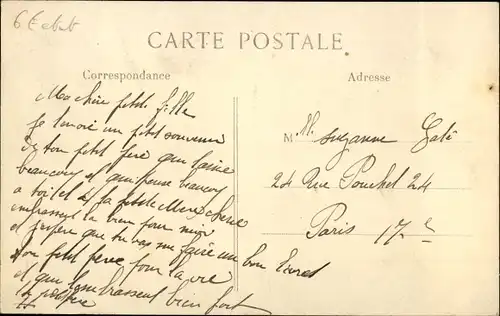 CARTE POSTALE
Correspondance
Ma chère petite fille
Je t'envoie un petit souvenir
de ton petit père qui t'aime
beaucoup et qui pense beaucoup
a toi et a ta petite Mère chérie
embrasse la bien pour moi
et j'espère que tu vas me faire un bon
ton petit père pour la vie
et qui t'embrassent bien fort
Adresse
M lle Suzanne
24 Rue Pouchet 24
Paris 17e